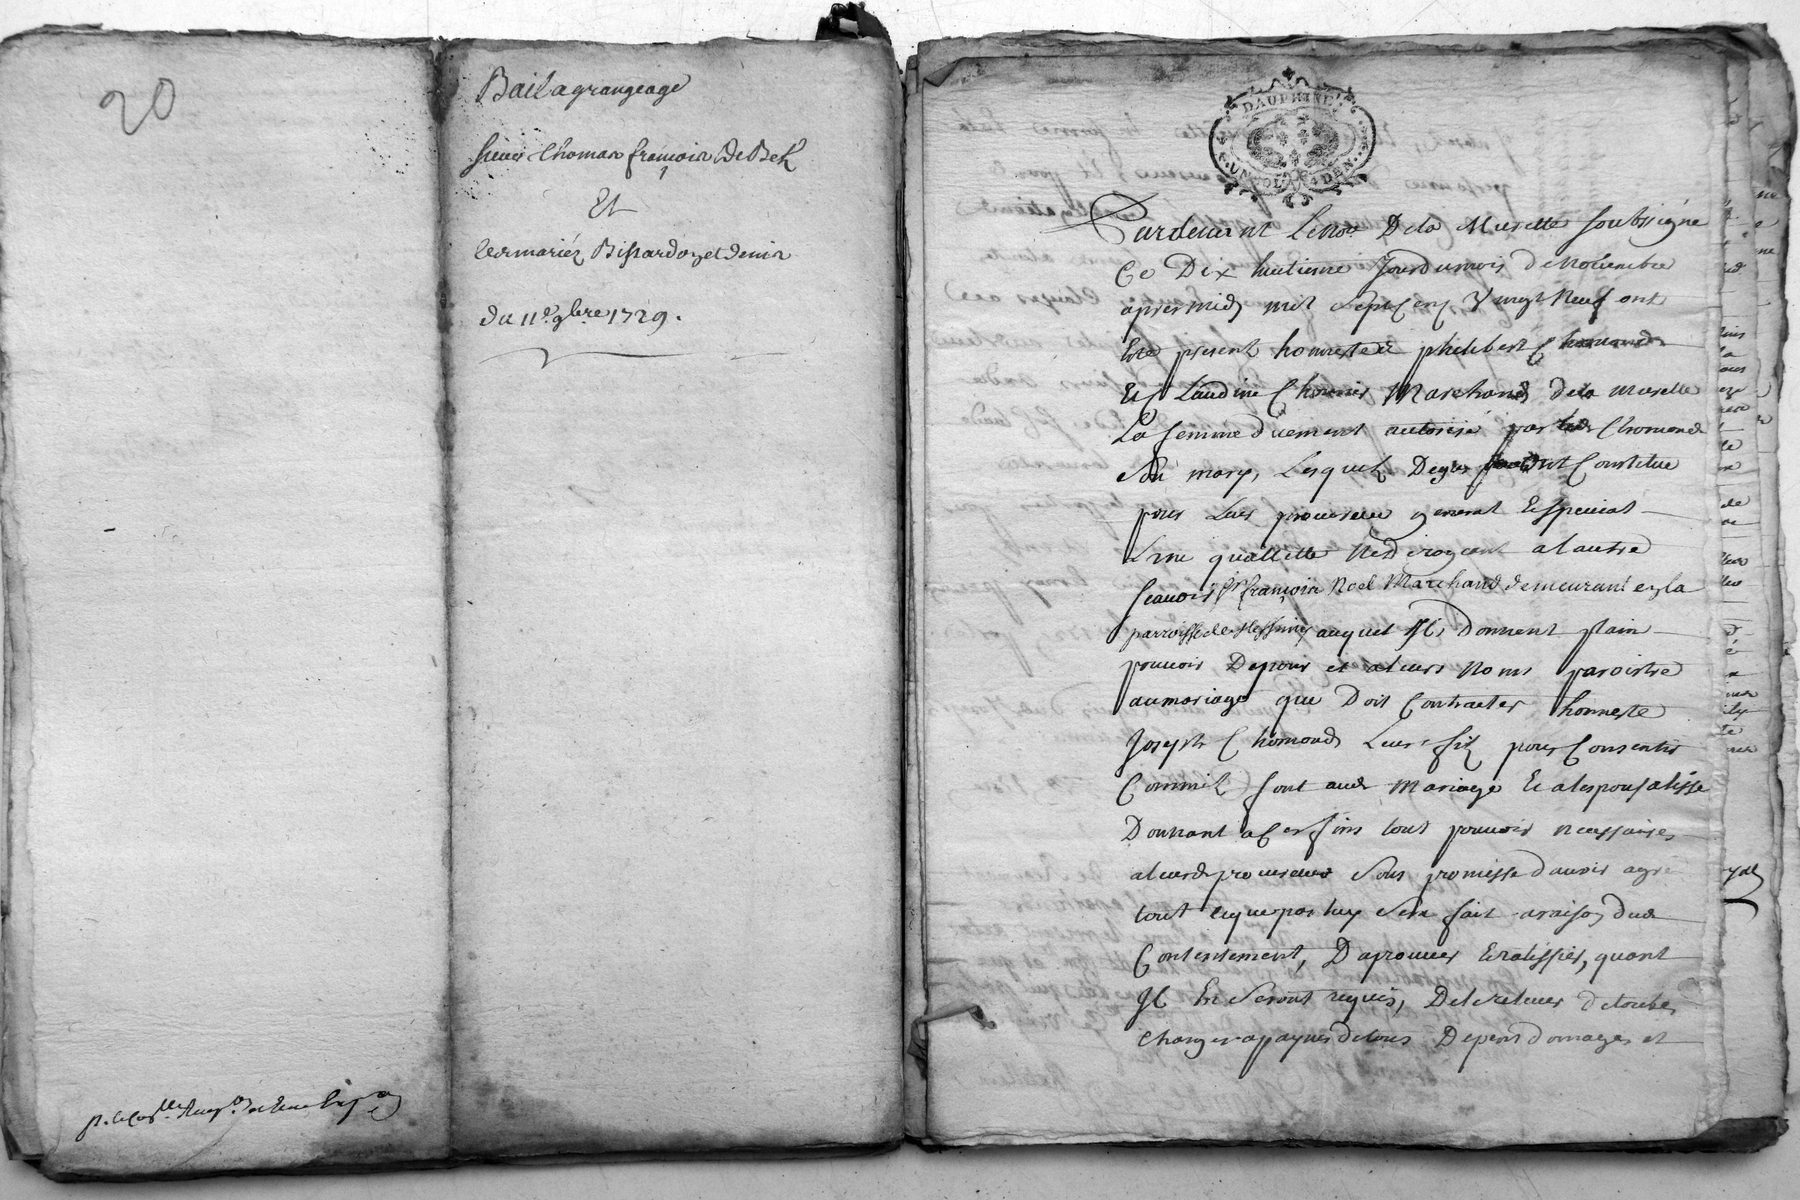 20
Bail a grangeage
sieur Thomas françois De Bek
Et
les mariés Bissardon et Denis
du 11e. 9bre. 1729.
DAUPHINÉ
UN SOL 4 DEN.
Pardevant Le Nore. De la Murette soubsigné
Ce Dix huitieme Jour du mois de Novembre
apres midy mil Sept Cent Vingt Neuf ont
Este present honneste Philibert Chomond
Et Laudine Chomier Marchand de la Murette
La femme duement autorisé par led. Chomond
Son mary, Lesquels De gré ont Constitue
pour Leur procureur general Et special
L'une quallitte Ne derogeant a l'autre
scavoir sr. françois Noel Marchand demeurant en la
parroisse de auquel Ils Donnent plain
pouvoir De pour et a leurs Noms paroistre
au mariage que Doit Contracter honneste
Joseph Chomond Leur fils pour Consentir
Comme ils font aud. Mariage Et a les pousalisse
Donnant a Ces fins tout pouvoir necessaires
a leurd. procureur Sous promesse d'avoir agré
tout ce que par luy Sera fait a raison dud.
Contentement, D'aprouver Et ratiffier, quant
Ils En Seront requis, De le relever de toutes
Charges a payne de tous Depens Domages et